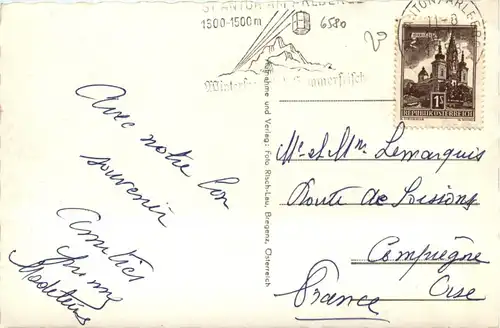 ST ANTON AM ARLBERG
1300-1500 m
6580
ANTON/ARLBERG
11-8
1S
REPUBLIK ÖSTERREICH
Aufnahme und Verlag: Foto Risch-Lau, Bregenz, Österreich
Avec notre bon
souvenir
Amitiés
Madeleine
Mr et Mme Lemarquis
Route de Soissons
Compiègne
Oise
France